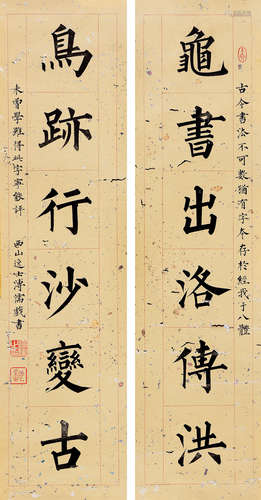 龜書出洛傳洪
古今書法不可數猶有字本存於經我于八體
鳥跡行沙變古
未曾學難得此字寧敢評
西山逸士溥儒戲書